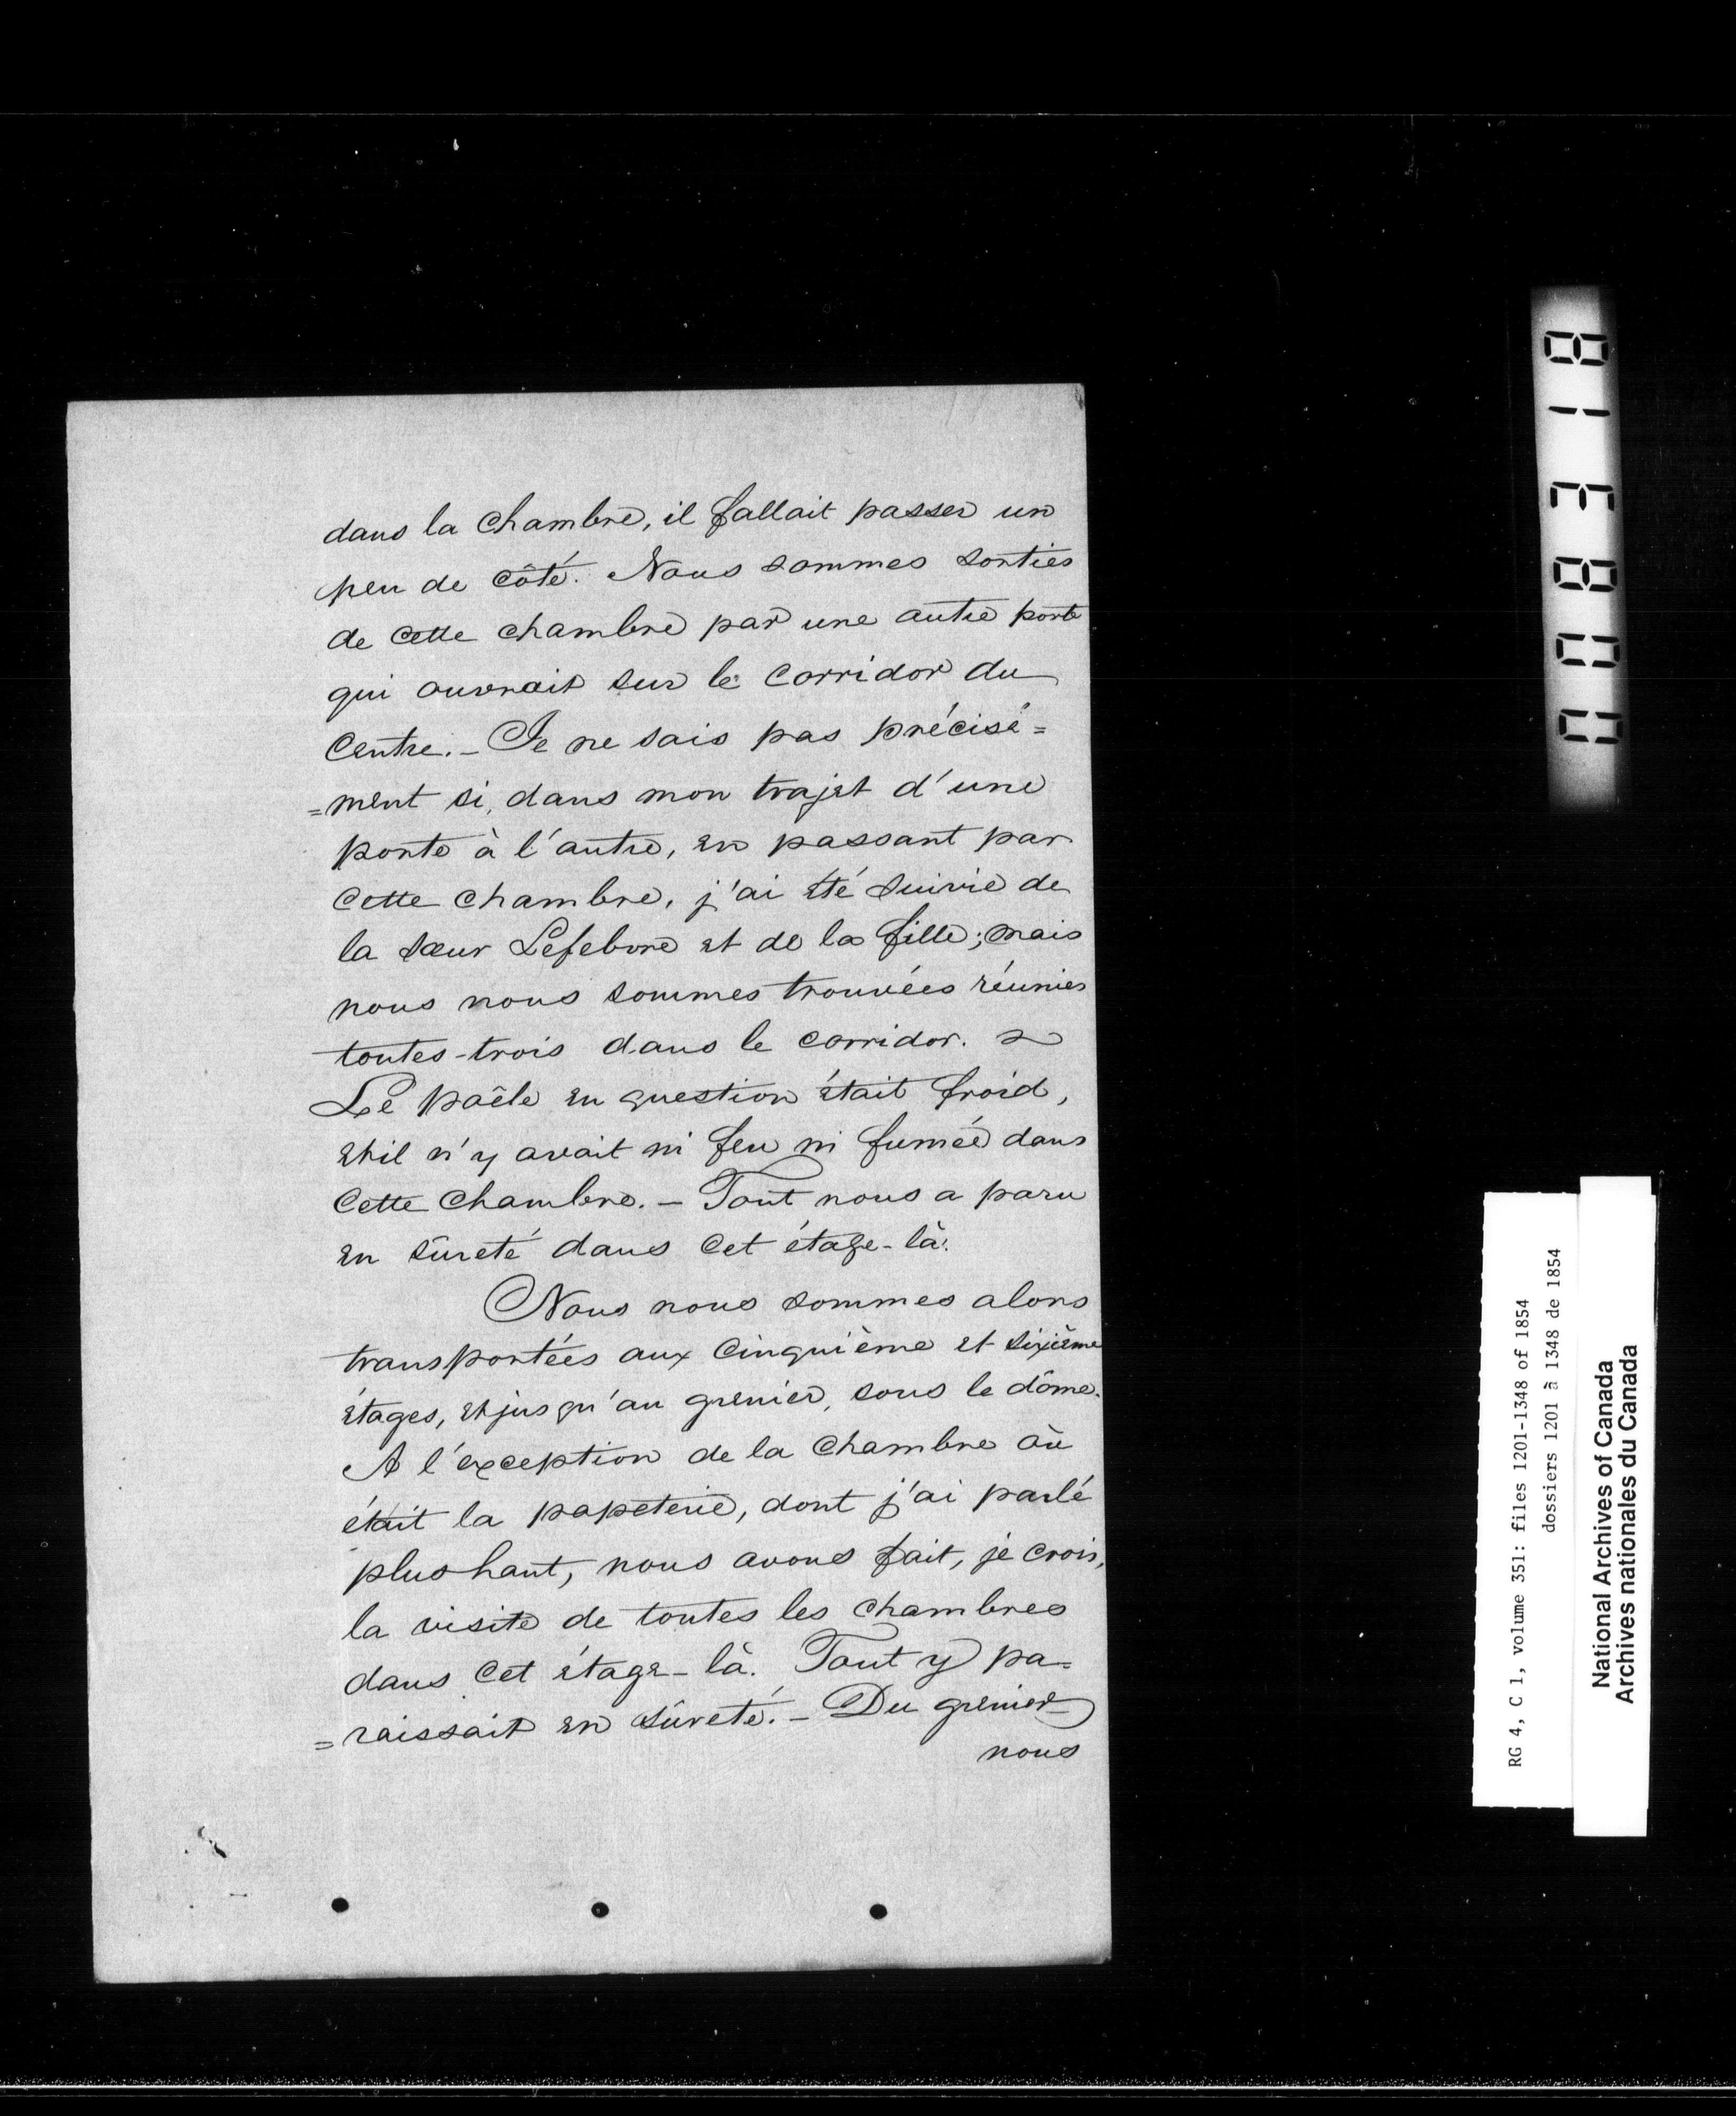 dans la chambre, il fallait passer un
peu de côté. Nous sommes sorties
de cette chambre par une autre porte
qui ouvrait sur le corridor du
centre. – Je ne sais pas précisé=
=ment si, dans mon trajet d'une
porte à l'autre, en passant par
cette chambre, j'ai été suivie de
la sœur Lefebvre et de la fille; mais
nous nous sommes trouvées réunies
toutes-trois dans le corridor.
Le poêle en question était froid,
et il n'y avait ni feu ni fumée dans
cette chambre. – Tout nous a paru
en sûreté dans cet étage-là.
Nous nous sommes alors
transportées aux cinquième et sixième
étages, et jusqu'au grenier, sous le dôme.
A l'exception de la chambre où
était la papeterie, dont j'ai parlé
plus haut, nous avons fait, je crois,
la visite de toutes les chambres
dans cet étage-là. Tout y pa=
=raissait en sûreté. – Du grenier
nous
RG 4, C 1, volume 351: files 1201-1348 of 1854
dossiers 1201 à 1348 de 1854
National Archives of Canada
Archives nationales du Canada